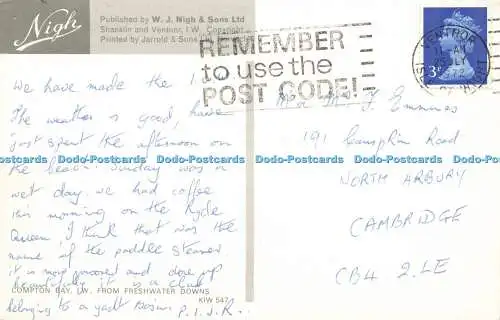 Nigh
Published by W. J. Nigh & Sons Ltd
Shanklin and Ventnor, I.W. Copyright
Printed by Jarrold & Sons
REMEMBER
to use the
POST CODE!
VENTNOR
3P
We have made the
The weather is good, have
just spent the afternoon on
the beach. Sunday was a
wet day we had coffee
this morning on the Ryde
Queen, I think that was the
name of the paddle steamer
it is now moored and done up
beautifully it is a club
belonging to a yacht Basin. P.I.J.R.
COMPTON BAY, I.W. FROM FRESHWATER DOWNS
KIW 547
F Emmines
191 Campkin Road
NORTH ARBURY
CAMBRIDGE
CB4 2LE
Dodo-Postcards Dodo-Postcards Dodo-Postcards Dodo-Postcards Dodo-Postcards Dodo-Postcards